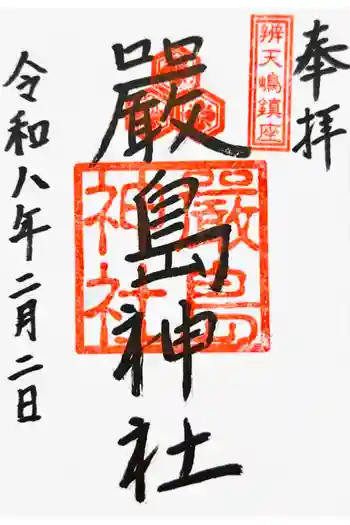 奉拝
辨天嶋鎮座
嚴島神社
嚴島
神社
令和八年二月二日